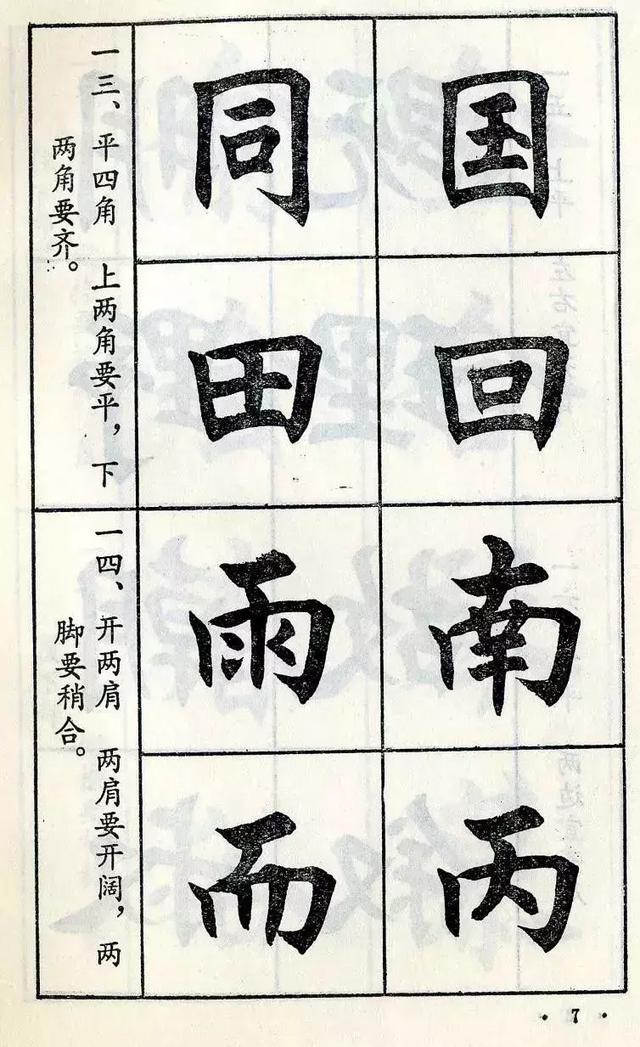 国回
同田
一三、平四角 上两角要平,下
两角要齐。
南丙
雨而
一四、开两肩 两肩要开阔,两
脚要稍合。
· 7 ·